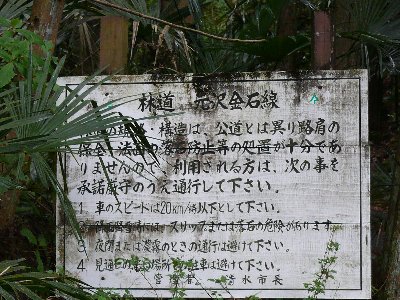 林道 元沢金石線
規格・構造は、公道とは異り路肩の
保全、法面の落石防止等の処置が十分であ
りませんので、利用される方は、次の事を
承諾厳守のうえ通行して下さい。
1 車のスピードは20km/時以下として下さい。
には、スリップまたは落石の危険があります。
3 夜間または濃霧のときの通行は避けて下さい。
4 見通しの 場所 駐車は避けて下さい。
管理者 清水市長